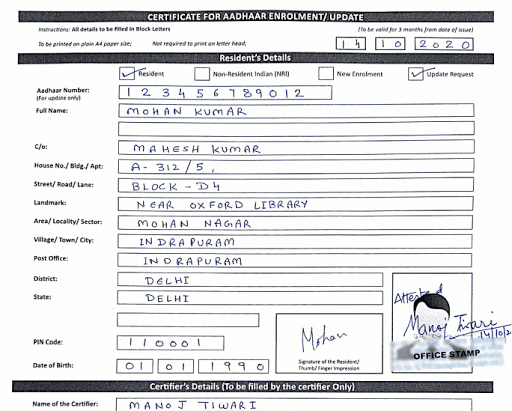 CERTIFICATE FOR AADHAAR ENROLMENT/ UPDATE
Instructions: All details to be filled in Block Letters
(To be valid for 3 months from date of issue)
To be printed on plain A4 paper size; Not required to print on letter head;
14 10 2020
Resident's Details
Resident Non-Resident Indian (NRI) New Enrolment Update Request
Aadhaar Number: 123456789012
(For update only)
Full Name: MOHAN KUMAR
C/o: MAHESH KUMAR
House No./ Bldg./ Apt: A-312/5,
Street/ Road/ Lane: BLOCK-D4
Landmark: NEAR OXFORD LIBRARY
Area/ Locality/ Sector: MOHAN NAGAR
Village/ Town/ City: INDRAPURAM
Post Office: INDRAPURAM
District: DELHI
State: DELHI
Attested
Manoj Tiwari
14/10/2
OFFICE STAMP
PIN Code: 110001
Mohan
Signature of the Resident/
Thumb/ Finger Impression
Date of Birth: 01 01 1990
Certifier's Details (To be filled by the certifier Only)
Name of the Certifier: MANOJ TIWARI